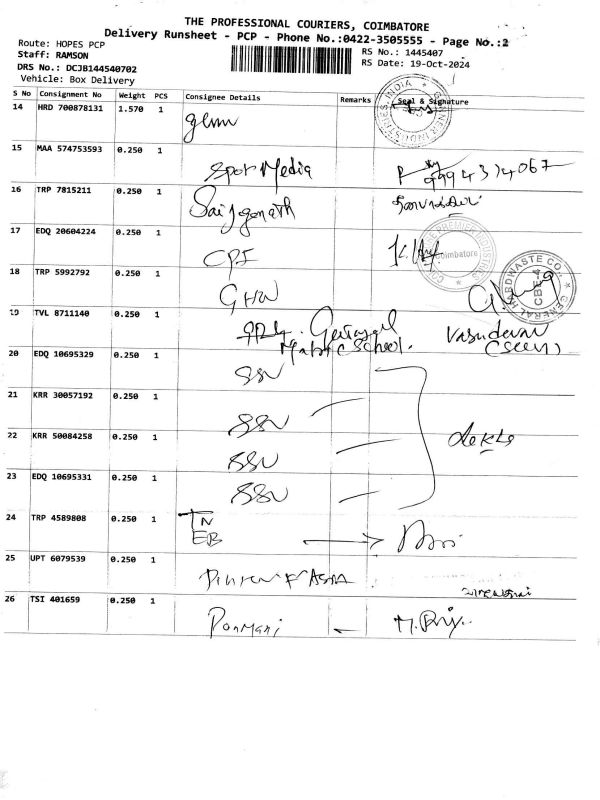 THE PROFESSIONAL COURIERS, COIMBATORE
Delivery Runsheet - PCP - Phone No.:0422-3505555 - Page No.:2
Route: HOPES PCP
RS No.: 1445407
Staff: RAMSON
RS Date: 19-Oct-2024
DRS No.: DCJB144540702
Vehicle: Box Delivery
S No Consignment No Weight PCS Consignee Details Remarks Seal & Signature
14 HRD 700878131 1.570 1
15 MAA 574753593 0.250 1 Spot Media 9994314067
16 TRP 7815211 0.250 1 Sai Jaganath
17 EDQ 20604224 0.250 1 CPI
Coimbatore
18 TRP 5992792 0.250 1 GHW
GENERAL HARDWASTE CO. CBE-4
19 TVL 8711140 0.250 1 School. Vasudevan
20 EDQ 10695329 0.250 1 SSV
21 KRR 30057192 0.250 1 SSV
22 KRR 50084258 0.250 1 SSV
23 EDQ 10695331 0.250 1 SSV
24 TRP 4589808 0.250 1 TN
EB
25 UPT 6079539 0.250 1
26 TSI 401659 0.250 1 Ponmani